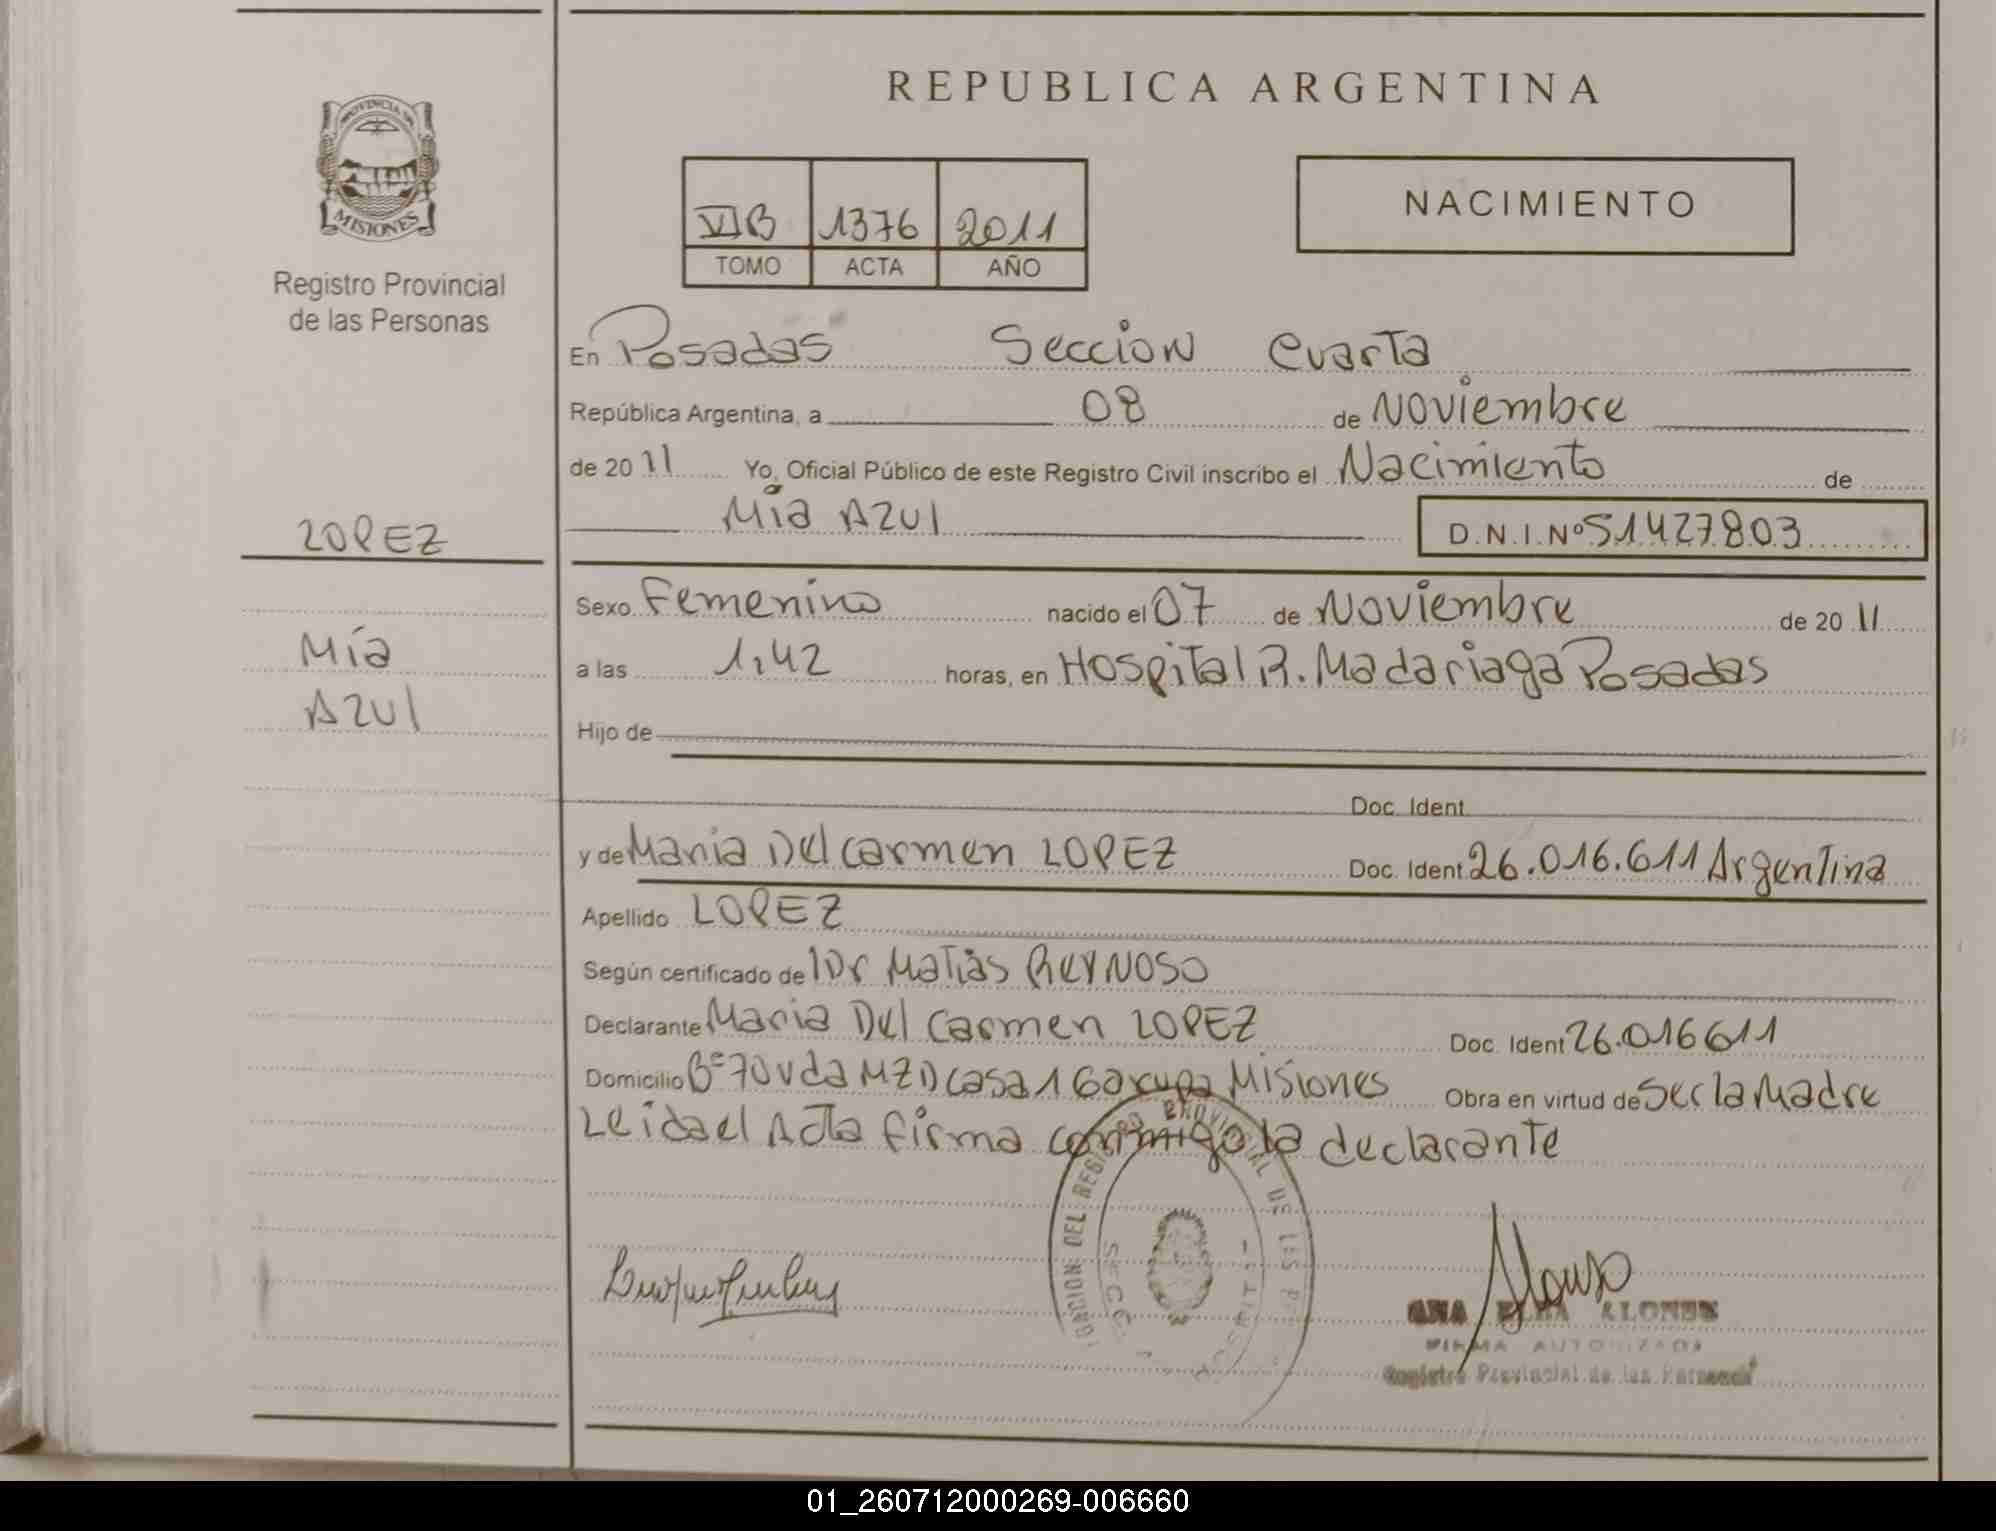 REPUBLICA ARGENTINA
PROVINCIA DE
MISIONES
Registro Provincial
de las Personas
VIB 1376 2011
TOMO ACTA AÑO
NACIMIENTO
En Posadas Seccion Cuarta
República Argentina, a 08 de Noviembre
de 2011 Yo, Oficial Público de este Registro Civil inscribo el Nacimiento de
Mía Azul D.N.I.Nº 51427803
LOPEZ
Mía
Azul
Sexo Femenino nacido el 07 de Noviembre de 2011
a las 1,42 horas, en Hospital R. Madariaga Posadas
Hijo de
Doc. Ident.
y de Maria Del Carmen LOPEZ Doc. Ident. 26.016.611 Argentina
Apellido LOPEZ
Según certificado de Dr Matias Reynoso
Declarante Maria Del Carmen LOPEZ Doc. Ident 26.016611
Domicilio Bº 70 Vda MZ D casa 1 Garupa Misiones Obra en virtud de Ser la Madre
Leida el Acta firma conmigo la declarante
REGISTRO PROVINCIAL DE LAS
ANA ALONSO
FIRMA AUTORIZADA
Registro Provincial de las Personas
01_260712000269-006660